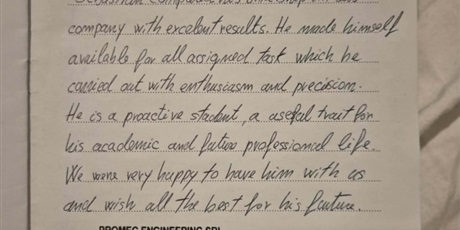 completed his internship
company with excellent results. He made himself
available for all assigned task which he
carried out with enthusiasm and precision.
He is a proactive student, a useful trait for
his academic and future professional life.
We were very happy to have him with us
and wish all the best for his future.
PROMEC ENGINEERING SRL